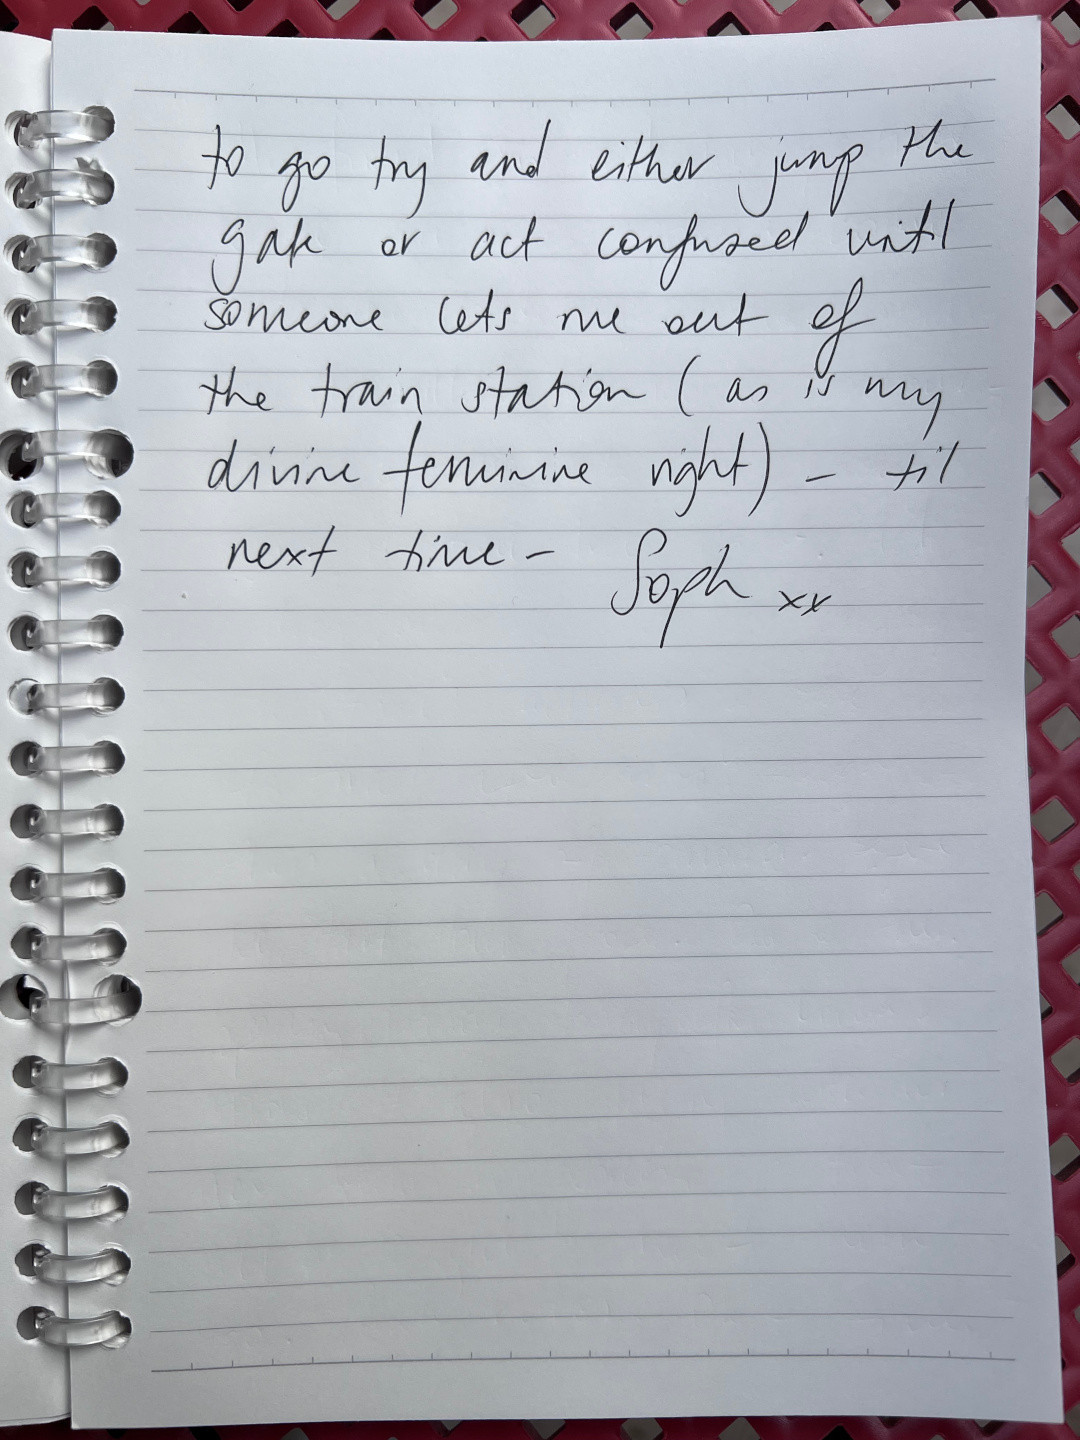 to go try and either jump the
gate or act confused until
someone lets me out of
the train station (as is my
divine feminine right) - til
next time -
Soph xx